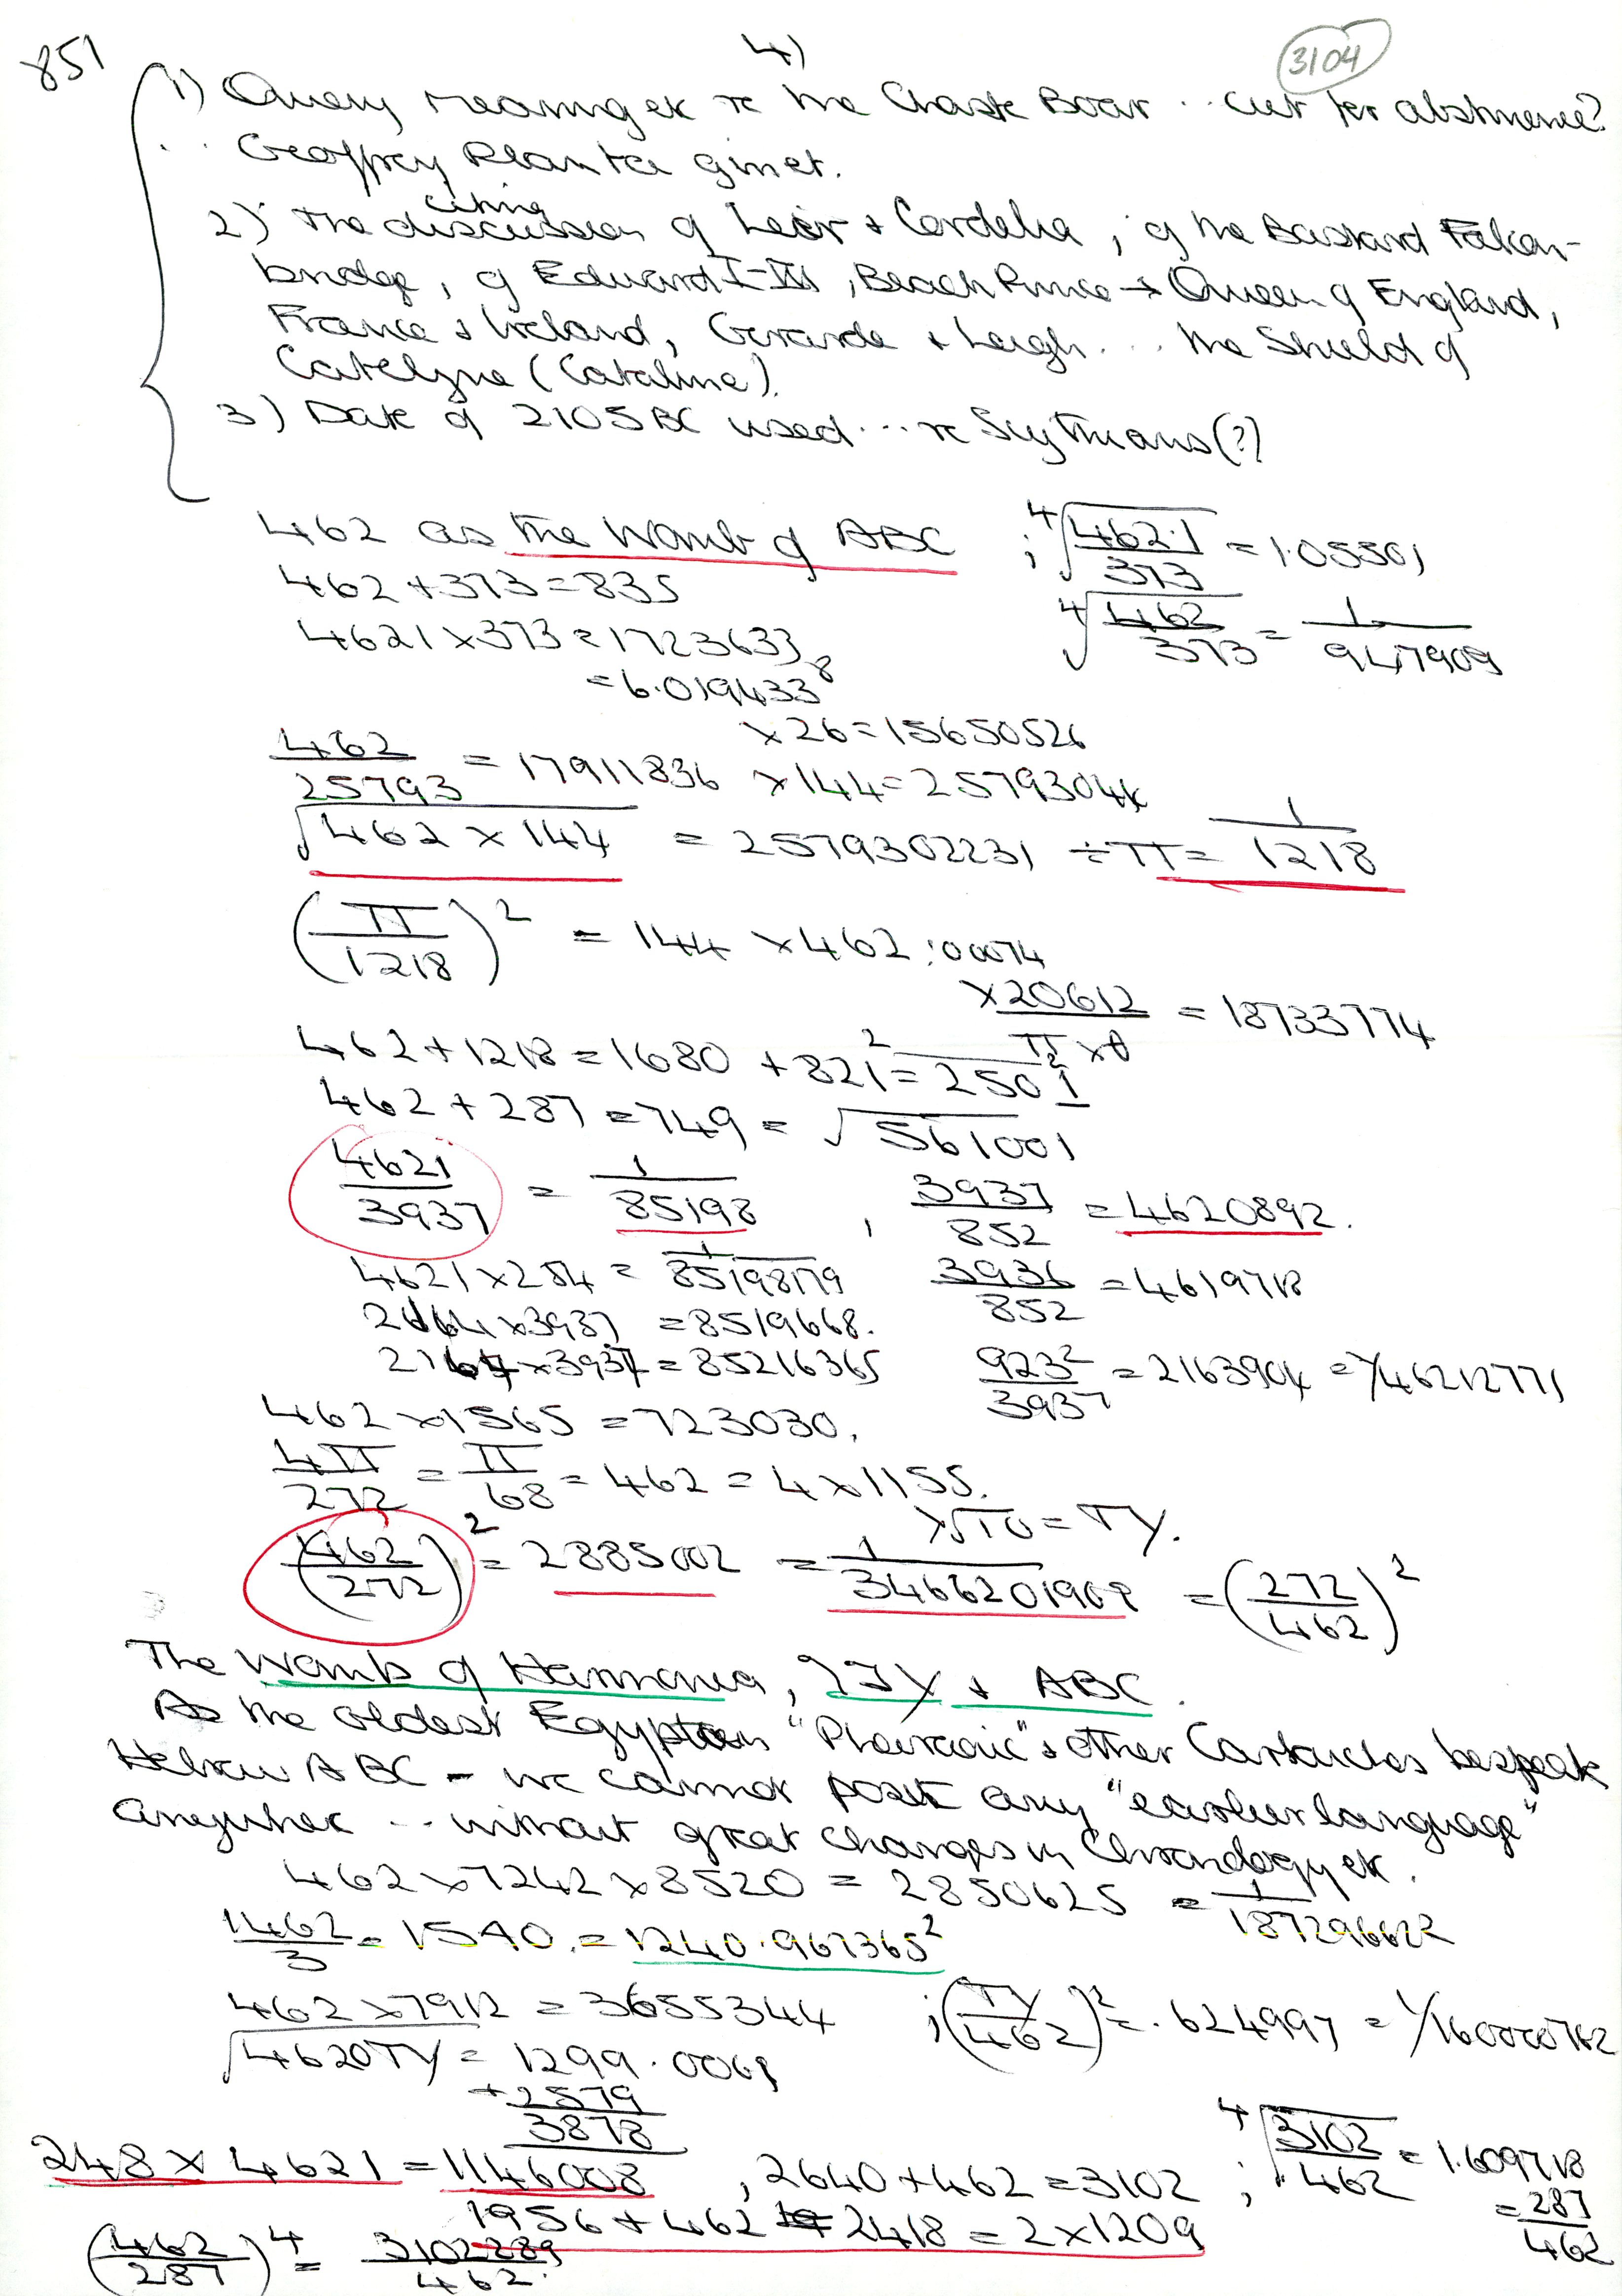 851
4)
3104
1) Query meaning etc re the Chaste Boar .. cut for abstinence?
.. Geoffrey Planta ginet.
citing
2) The discussion of Leir + Cordelia, of the Bastard Falcon-
bridge, of Edward I-III, Black Prince → Queen of England,
France + Ireland, Gerarde + Leigh ... the Shield of
Catelyne (Cataline).
3) Date of 2105 BC used ... re Scythians (?)
462 as the Womb of ABC ; ⁴√(462·1/373) = 1·05501
462 + 373 = 835 ⁴√(462/373) = 1/947909
4621 × 373 = 1723633
= 6·019433⁸
× 26 = 15650526
462/25793 = 17911836 × 144 = 2579304
√(462 × 144) = 2579302231 ÷ π = 1/1218
(π/1218)² = 144 × 462 :00074
× 20612/π² × θ = 18733774
462 + 1218 = 1680 + 821 = 2501
462 + 287 = 749 = √561001
4621/3937 = 1/85198 , 3937/852 = 4620892.
4621 × 284 = 1/85198179 3936/852 = 4619718
2164 × 3937 = 8519668.
2164 × 3937 = 85216365 923²/3937 = 2163904 = 1/46212771
462 × 1565 = 723030.
4π/272 = π/68 = 462 = 4 × 1155.
× √10 = TY.
(462/272)² = 2885002 = 1/3466201968 = (272/462)²
The Womb of Harmonia, + ABC.
As the oldest Egyptian "Pharaoic" + other Cartouches bespeak
Hebrew ABC - we cannot posit any "earlier language"
anywhere .. without great changes in Chronology etc.
462 × 7242 × 8520 = 2850625 = 1/187296622
1462/3 = 1540. = 1240·967365²
462 × 7912 = 3655344 ; (TY/462)² = ·624997 = 1/160000762
√4620TY = 1299·0068
+ 2579
3878
248 × 4621 = 1146008 , 2640 + 462 = 3102 ; ⁴√(3102/462) = 1·609718
1956 + 462 = 2418 = 2 × 1209 = 287/462
(462/287)⁴ = 3102289/462.